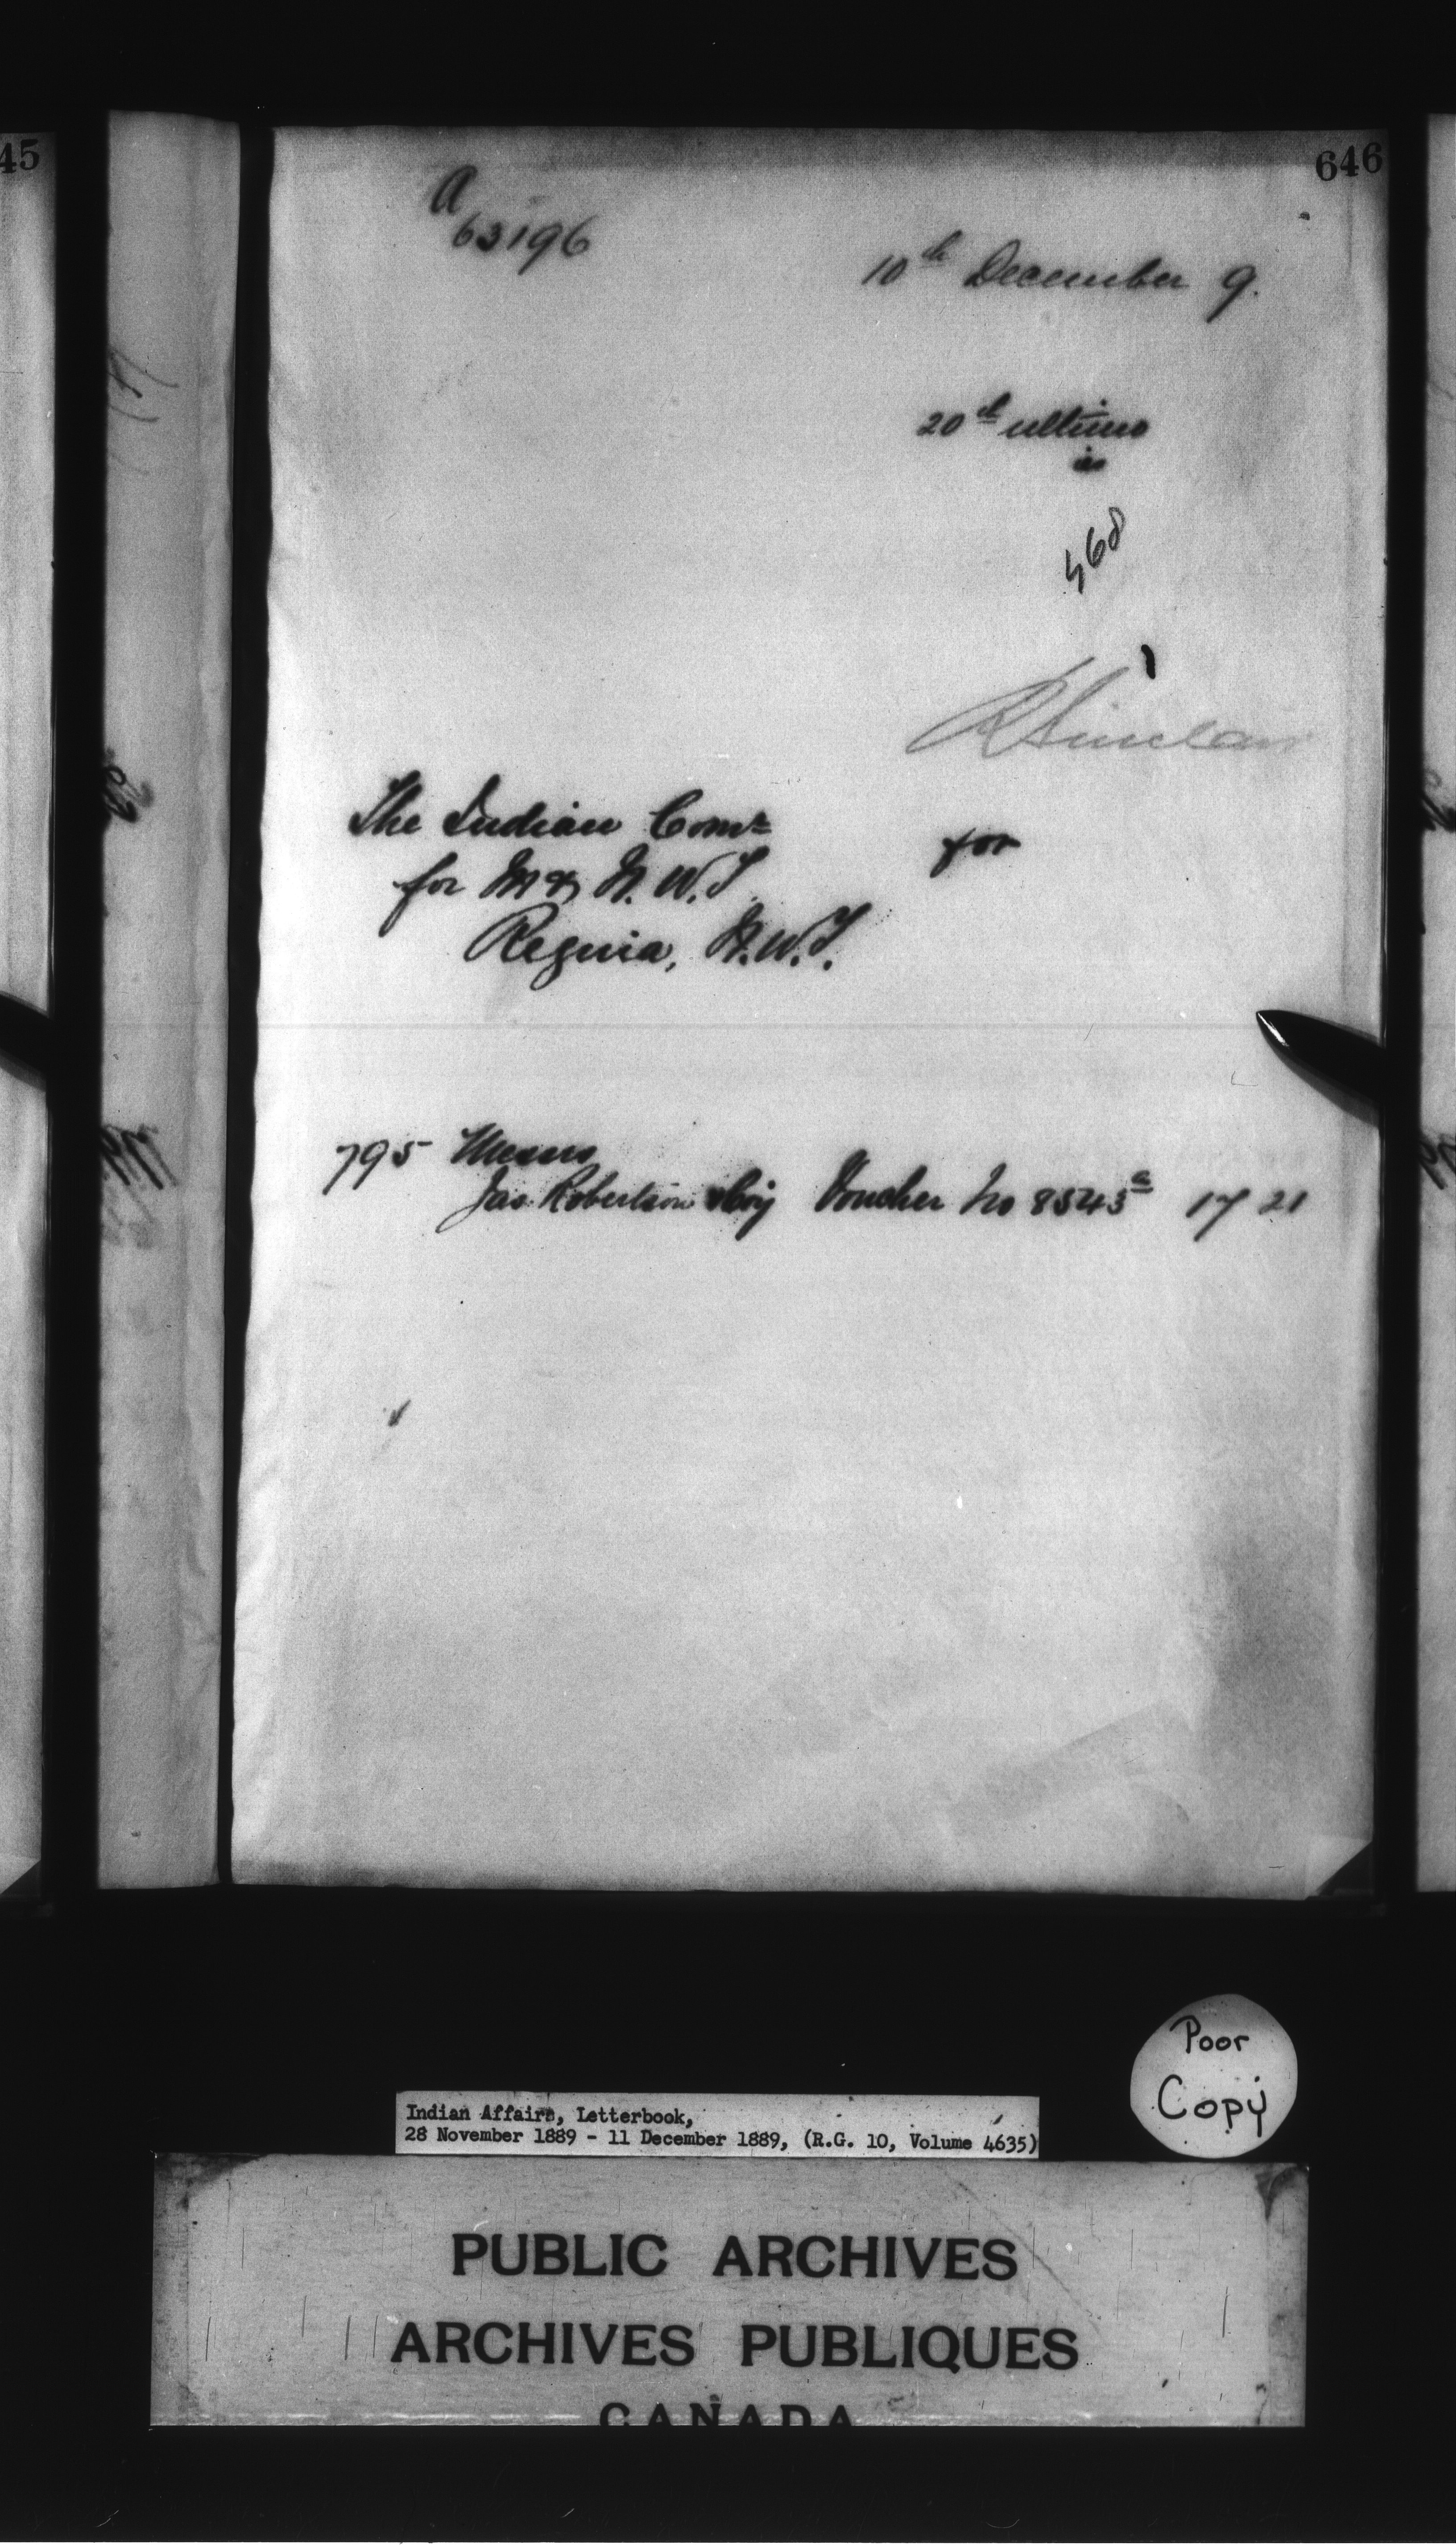 45
646
A
63196
10th December 9.
20th ultimo
is
468
R Sinclair
The Indian Comr
for
for M & N. W. T.
Regina, N.W.T.
795 Messrs
Jas Robertson & Coy Voucher No 8543a 17 21
Poor
Copy
Indian Affairs, Letterbook,
28 November 1889 - 11 December 1889, (R.G. 10, Volume 4635)
PUBLIC ARCHIVES
ARCHIVES PUBLIQUES
CANADA